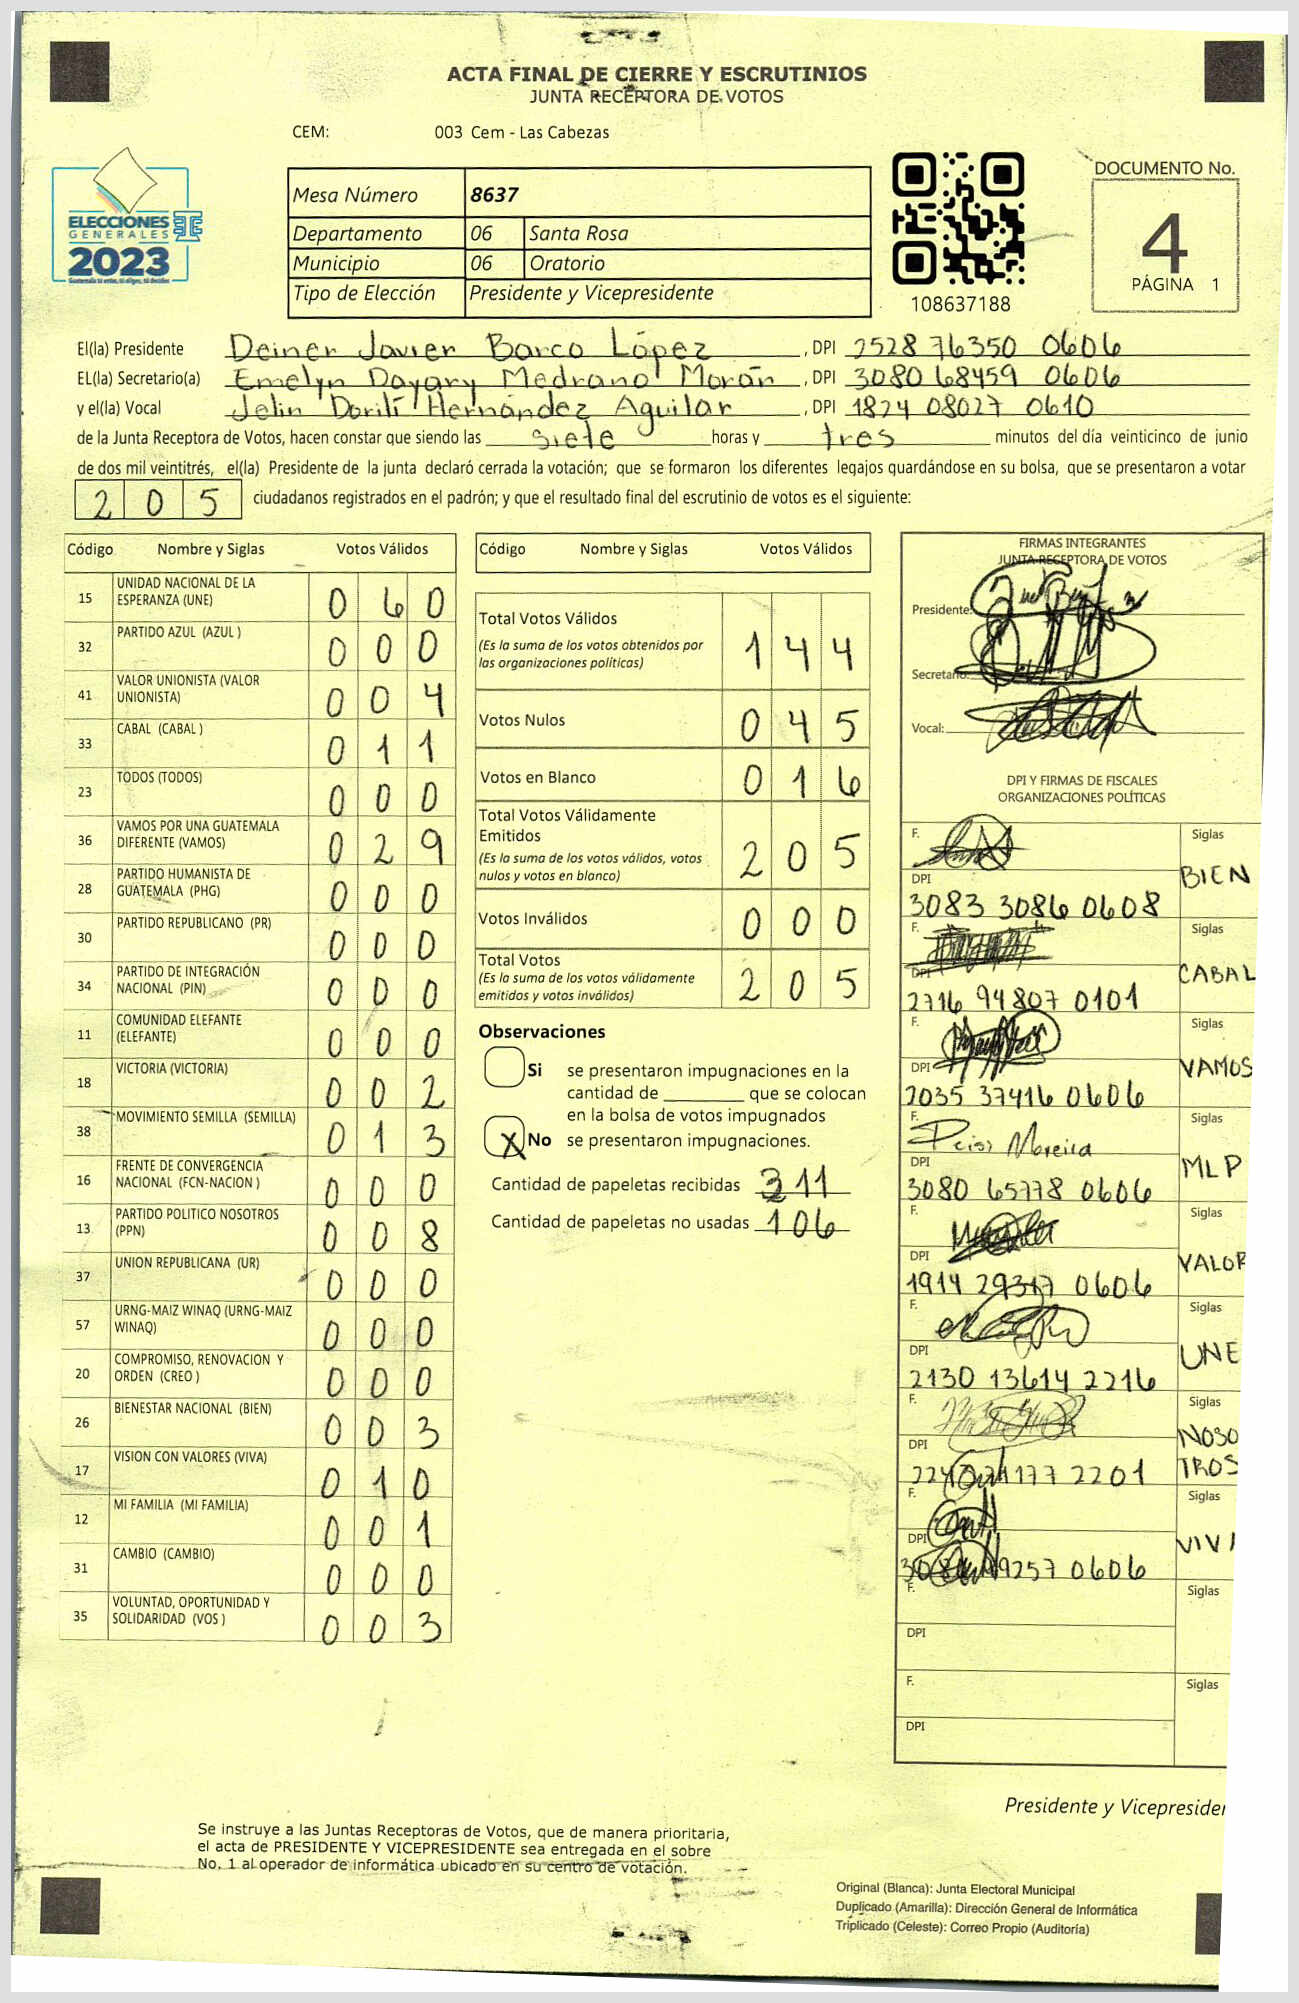 ACTA FINAL DE CIERRE Y ESCRUTINIOS
JUNTA RECEPTORA DE VOTOS
CEM: 003 Cem - Las Cabezas
ELECCIONES
GENERALES
2023
Mesa Número 8637
Departamento 06 Santa Rosa
Municipio 06 Oratorio
Tipo de Elección Presidente y Vicepresidente
108637188
DOCUMENTO No.
4
PÁGINA 1
El(la) Presidente Deiner Javier Barco López, DPI 2528 76350 0606
EL(la) Secretario(a) Emelyn Dayary Medrano Morán, DPI 3080 68459 0606
y el(la) Vocal Jelin Dorilí Hernández Aguilar, DPI 1824 08027 0610
de la Junta Receptora de Votos, hacen constar que siendo las siete horas y tres minutos del día veinticinco de junio
de dos mil veintitrés, el(la) Presidente de la junta declaró cerrada la votación; que se formaron los diferentes legajos quardándose en su bolsa, que se presentaron a votar
205 ciudadanos registrados en el padrón; y que el resultado final del escrutinio de votos es el siguiente:
Código Nombre y Siglas Votos Válidos
15 UNIDAD NACIONAL DE LA ESPERANZA (UNE) 0 6 0
32 PARTIDO AZUL (AZUL ) 0 0 0
41 VALOR UNIONISTA (VALOR UNIONISTA) 0 0 4
33 CABAL (CABAL ) 0 1 1
23 TODOS (TODOS) 0 0 0
36 VAMOS POR UNA GUATEMALA DIFERENTE (VAMOS) 0 2 9
28 PARTIDO HUMANISTA DE GUATEMALA (PHG) 0 0 0
30 PARTIDO REPUBLICANO (PR) 0 0 0
34 PARTIDO DE INTEGRACIÓN NACIONAL (PIN) 0 0 0
11 COMUNIDAD ELEFANTE (ELEFANTE) 0 0 0
18 VICTORIA (VICTORIA) 0 0 2
38 MOVIMIENTO SEMILLA (SEMILLA) 0 1 3
16 FRENTE DE CONVERGENCIA NACIONAL (FCN-NACION ) 0 0 0
13 PARTIDO POLITICO NOSOTROS (PPN) 0 0 8
37 UNION REPUBLICANA (UR) 0 0 0
57 URNG-MAIZ WINAQ (URNG-MAIZ WINAQ) 0 0 0
20 COMPROMISO, RENOVACION Y ORDEN (CREO ) 0 0 0
26 BIENESTAR NACIONAL (BIEN) 0 0 3
17 VISION CON VALORES (VIVA) 0 1 0
12 MI FAMILIA (MI FAMILIA) 0 0 1
31 CAMBIO (CAMBIO) 0 0 0
35 VOLUNTAD, OPORTUNIDAD Y SOLIDARIDAD (VOS ) 0 0 3
Código Nombre y Siglas Votos Válidos
Total Votos Válidos 1 4 4
(Es la suma de los votos obtenidos por
las organizaciones políticas)
Votos Nulos 0 4 5
Votos en Blanco 0 1 6
Total Votos Válidamente
Emitidos 2 0 5
(Es la suma de los votos válidos, votos
nulos y votos en blanco)
Votos Inválidos 0 0 0
Total Votos 2 0 5
(Es la suma de los votos válidamente
emitidos y votos inválidos)
Observaciones
Si se presentaron impugnaciones en la
cantidad de ________ que se colocan
en la bolsa de votos impugnados
X No se presentaron impugnaciones.
Cantidad de papeletas recibidas 311
Cantidad de papeletas no usadas 106
FIRMAS INTEGRANTES
JUNTA RECEPTORA DE VOTOS
Presidente:
Secretario:
Vocal:
DPI Y FIRMAS DE FISCALES
ORGANIZACIONES POLÍTICAS
F. Siglas
DPI BIEN
3083 3086 0608
F. Siglas
DPI CABAL
2716 94807 0101
F. Siglas
DPI VAMOS
2035 37416 0606
F. Siglas
Moreira
DPI MLP
3080 65778 0606
F. Siglas
DPI VALOR
1914 29317 0606
F. Siglas
DPI UNE
2130 13614 2216
F. Siglas
DPI NOSO
TROS
2201
F. Siglas
DPI VIVA
9257 0606
F. Siglas
DPI
F. Siglas
DPI
Presidente y Vicepresiden
Se instruye a las Juntas Receptoras de Votos, que de manera prioritaria,
el acta de PRESIDENTE Y VICEPRESIDENTE sea entregada en el sobre
No. 1 al operador de informática ubicado en su centro de votación.
Original (Blanca): Junta Electoral Municipal
Duplicado (Amarilla): Dirección General de Informática
Triplicado (Celeste): Correo Propio (Auditoría)